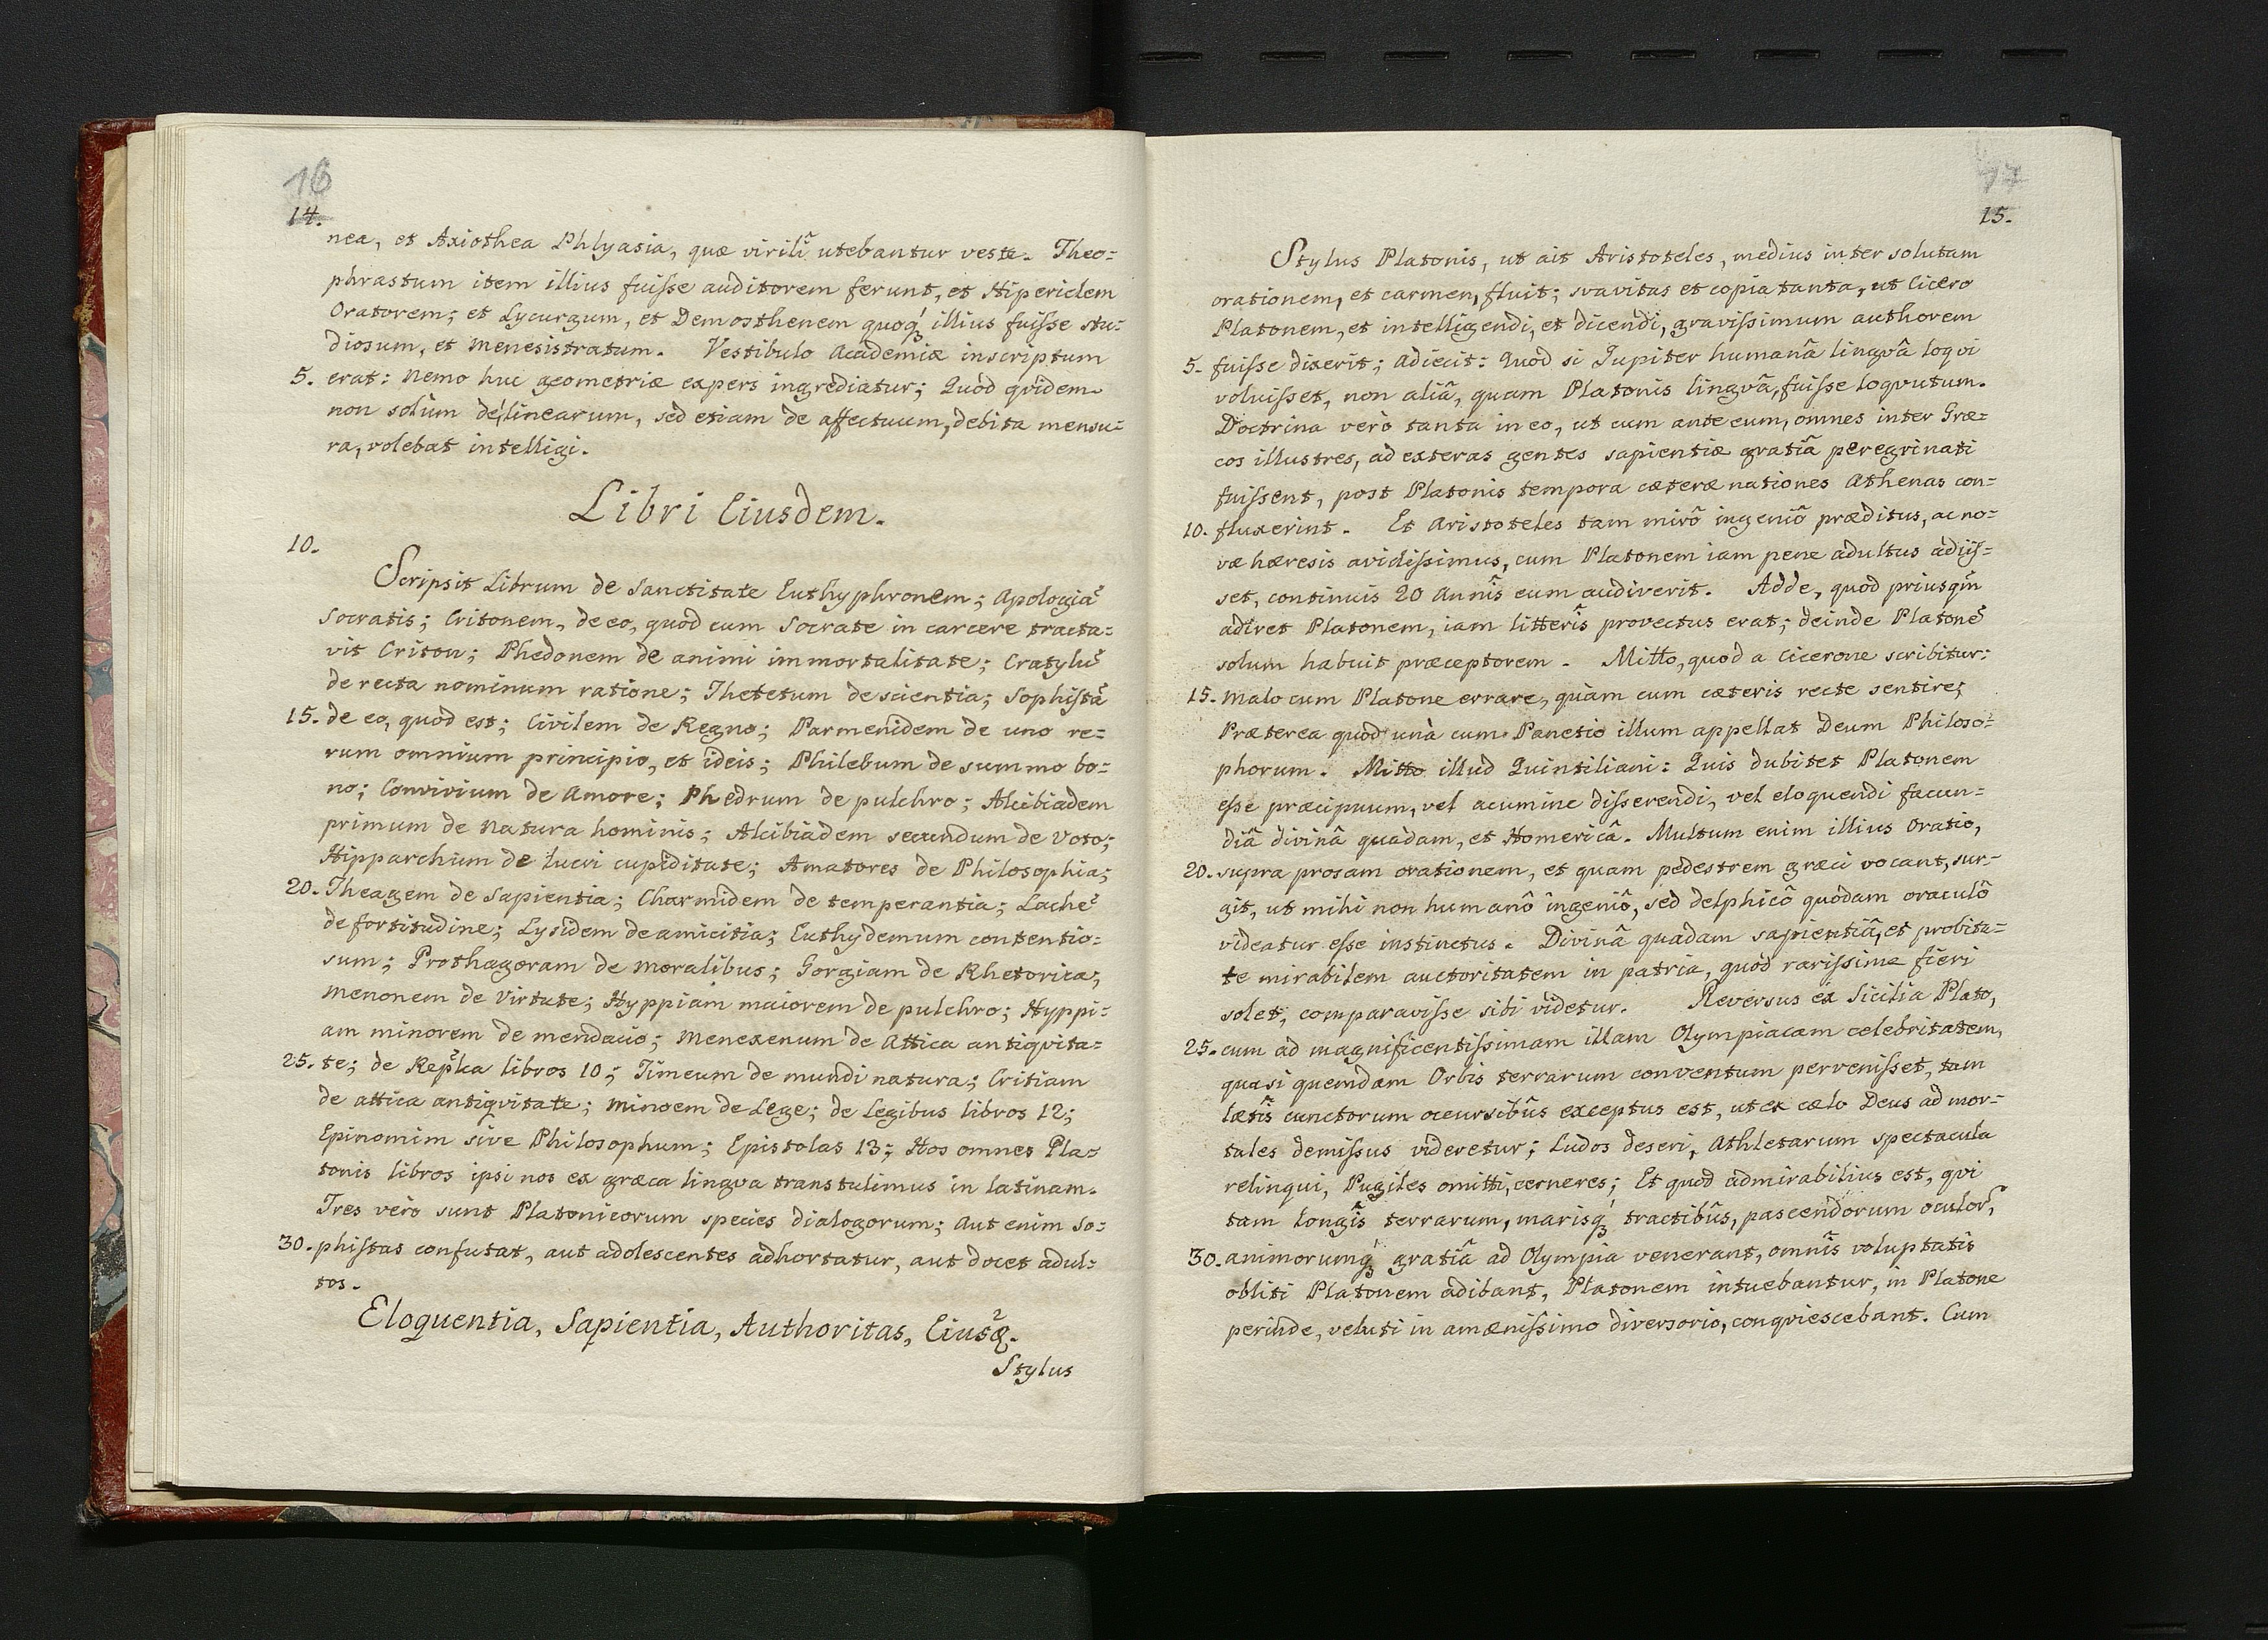 16
14.
nea, et Axiothea Phlyasia, quæ virilî utebantur veste. Theo=
phrastum item illius fuisse auditorem ferunt, et Hipericlem
Oratorem; et Lycurgum, et Demosthenem quoq́ꝫ illius fuisse stu=
diosum, et Menesistratum. Vestibulo Academiæ inscriptum
5. erat: Nemo huc geometriæ expers ingrediatur; Quòd qvidem
non solùm de linearum, sed etiam de affectuum, debita mensu=
ra, volebat intelligi.
Libri Eiusdem.
10.
Scripsit Librum de Sanctitate Euthyphronem; Apologiã
Socratis; Critonem, de eo, quod cum Socrate in carcere tracta=
vit Criton; Phedonem de animi immortalitate; Cratylũ
de recta nominum ratione; Thetetum de scientia; Sophistã
15. de eo, quod est; Civilem de Regno; Parmenidem de uno re=
rum omnium principio, et ideis; Philebum de summo bo=
no; Convivium de Amore; Phedrum de pulchro; Alcibiadem
primum de Natura hominis; Alcibiadem secundum de Voto;
Hipparchum de lucri cupiditate; Amatores de Philosophia;
20. Theagem de Sapientia; Charmidem de temperantia; Lachẽ
de fortitudine; Lysidem de amicitia; Euthydemum contentio=
sum; Prothagoram de Moralibus; Gorgiam de Rhetorica;
Menonem de Virtute; Hyppiam maiorem de pulchro; Hyppi=
am minorem de mendacio; Menexenum de Attica antiqvita=
25. te; de Rep̃lica libros 10; Timeum de mundi natura; Critiam
de attica antiqvitate; Minoem de Lege; de Legibus libros 12;
Epinomim sive Philosophum; Epistolas 13; Hos omnes Pla=
tonis libros ipsi nos ex græca lingva transtulimus in latinam.
Tres verò sunt Platonicorum species dialogorum; Aut enim So=
30. phistas confutat, aut adolescentes adhortatur, aut docet adul=
tos.
Eloquentia, Sapientia, Authoritas,
Stylus
17
15.
Stylus Platonis, ut ait Aristoteles, medius inter solutam
orationem, et carmen, fluit; svavitas et copia tanta, ut Cicero
Platonem, et intelligendi, et dicendi, gravissimum authorem
5. fuisse dixerit; Adiecit: Quod si Jupiter humanâ lingvâ loqvi
voluisset, non aliâ, quam Platonis lingvâ, fuisse loqvutum.
Doctrina verò tanta in eo, ut cum ante eum, omnes inter Græ=
cos illustres, ad exteras gentes sapientiæ gratiâ peregrinati
fuissent, post Platonis tempora cæteræ nationes Athenas con=
10. fluxerint. Et Aristoteles tam mirô ingeniô præditus, ac no=
væ hæresis avidissimus, cum Platonem iam pene adultus adiis=
set, continuis 20 Annîs eum audiverit. Adde, quod priusqm̃
adiret Platonem, iam litterîs provectus erat; deinde Platonẽ
solum habuit præceptorem. Mitto, quod a Cicerone scribitur:
15. Malo cum Platone errare, quàm cum cæteris recte sentire;
Præterea quòd unà cum Panetio illum appellat Deum Philoso=
phorum. Mitto illud Quintiliani: Quis dubitet Platonem
esse præcipuum, vel acumine disserendi, vel eloquendi facun=
diâ divinâ quadam, et Homericâ. Multum enim illius Oratio,
20. supra prosam orationem, et quam pedestrem græci vocant, sur=
git, ut mihi non humanô ingeniô, sed delphicô quodam oraculô
videatur esse instinctus. Divinâ quadam sapientiâ, et probita=
te mirabilem auctoritatem in patria, quod rarissime fieri
solet, comparavisse sibi videtur. Reversus ex Sicilia Plato,
25. cum ad magnificentissimam illam Olympiacam celebritatem,
quasi quemdam Orbis terrarum conventum pervenisset, tam
lætîs cunctorum occursibûs exceptus est, ut ex cælo Deus ad mor=
tales demissus videretur; Ludos deseri, Athletarum spectacula
relinqui, Pugiles omitti, cerneres; Et quod admirabilius est, qvi
tam longîs terrarum, marisq́ꝫ tractibûs, pascendorum oculor̃,
30. animorumq́ꝫ gratiâ ad Olympia venerant, omnîs voluptatis
obliti Platonem adibant, Platonem intuebantur, in Platone
perinde, veluti in amænissimo diversorio, conqviescebant. Cum